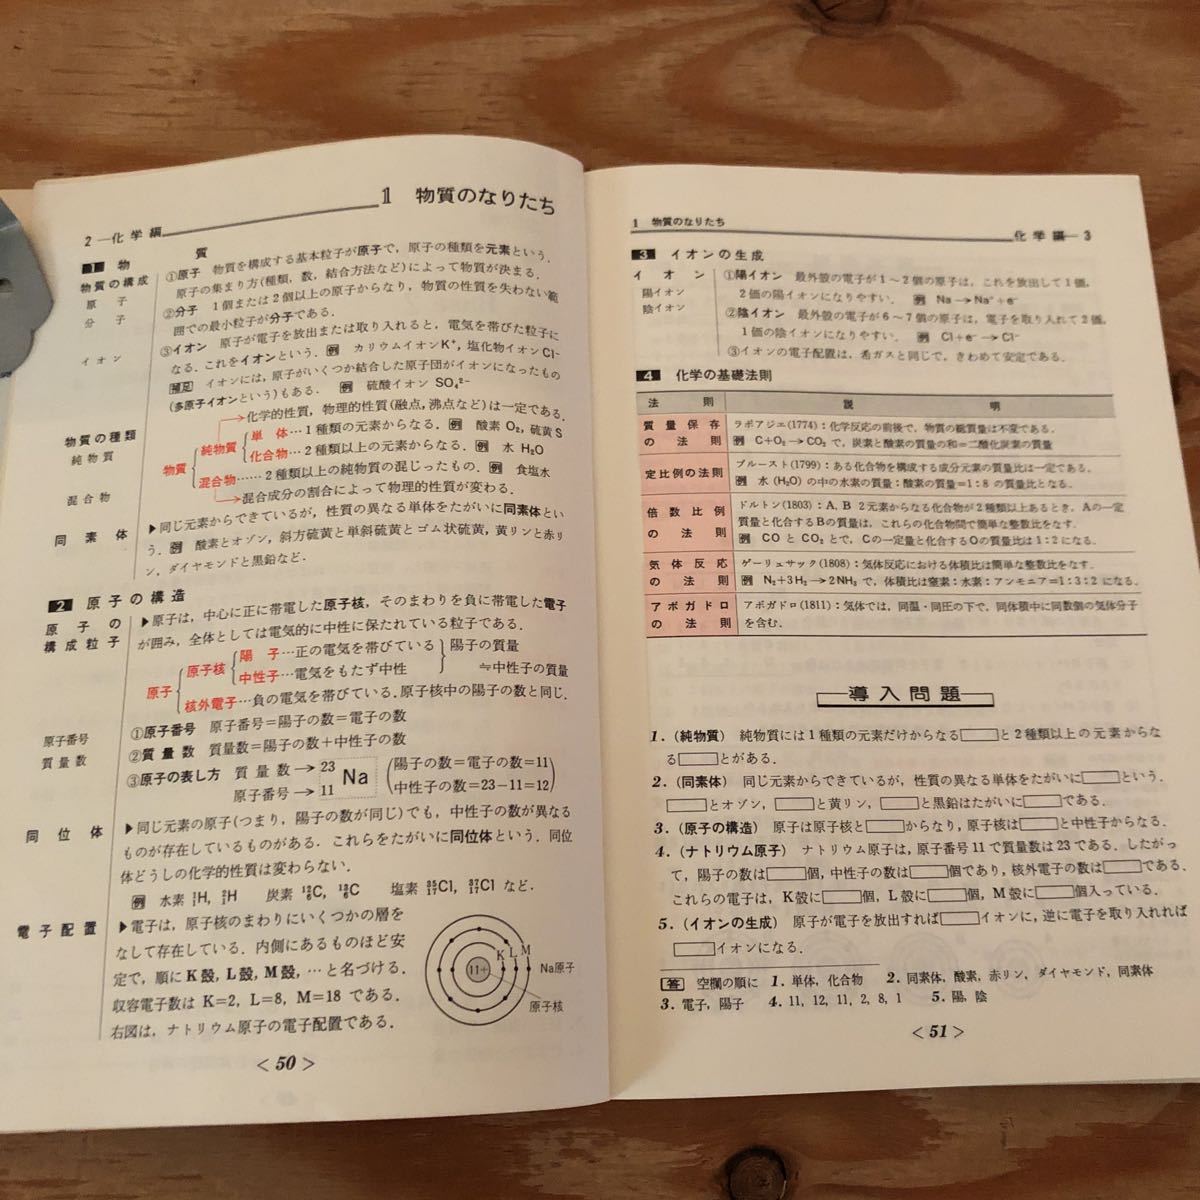 1 物質のなりたち
2—化学編
1 物質
物質の構成
原子
分子
イオン
①原子 物質を構成する基本粒子が原子で，原子の種類を元素という．
原子の集まり方(種類，数，結合方法など)によって物質が決まる．
②分子 1個または2個以上の原子からなり，物質の性質を失わない範
囲での最小粒子が分子である．
③イオン 原子が電子を放出または取り入れると，電気を帯びた粒子に
なる．これをイオンという．例 カリウムイオンK⁺，塩化物イオンCl⁻
補足 イオンには，原子がいくつか結合した原子団がイオンになったもの
(多原子イオンという)もある．例 硫酸イオン SO₄²⁻
物質の種類
純物質
混合物
→化学的性質，物理的性質(融点，沸点など)は一定である．
物質
純物質
単体…1種類の元素からなる．例 酸素 O₂，硫黄 S
化合物…2種類以上の元素からなる．例 水 H₂O
混合物……2種類以上の純物質の混じったもの．例 食塩水
→混合成分の割合によって物理的性質が変わる．
同素体
▶同じ元素からできているが，性質の異なる単体をたがいに同素体とい
う．例 酸素とオゾン，斜方硫黄と単斜硫黄とゴム状硫黄，黄リンと赤リ
ン，ダイヤモンドと黒鉛など．
2 原子の構造
原子の
構成粒子
▶原子は，中心に正に帯電した原子核，そのまわりを負に帯電した電子
が囲み，全体としては電気的に中性に保たれている粒子である．
原子
原子核
陽子…正の電気を帯びている
中性子…電気をもたず中性
陽子の質量
≒中性子の質量
核外電子…負の電気を帯びている．原子核中の陽子の数と同じ．
原子番号
質量数
①原子番号 原子番号＝陽子の数＝電子の数
②質量数 質量数＝陽子の数＋中性子の数
③原子の表し方 質量数→23
原子番号→11
Na
(陽子の数＝電子の数＝11
中性子の数＝23－11＝12)
同位体
▶同じ元素の原子(つまり，陽子の数が同じ)でも，中性子の数が異なる
ものが存在しているものがある．これらをたがいに同位体という．同位
体どうしの化学的性質は変わらない．
例 水素 ¹₁H, ²₁H 炭素 ¹²₆C, ¹³₆C 塩素 ³⁵₁₇Cl, ³⁷₁₇Cl など．
電子配置
▶電子は，原子核のまわりにいくつかの層を
なして存在している．内側にあるものほど安
定で，順にK殻，L殻，M殻，…と名づける．
収容電子数は K=2，L=8，M=18 である．
右図は，ナトリウム原子の電子配置である．
11+
K L M
Na原子
原子核
＜50＞
1 物質のなりたち
化学編—3
3 イオンの生成
イオン
陽イオン
陰イオン
①陽イオン 最外殻の電子が1～2個の原子は，これを放出して1価，
2価の陽イオンになりやすい．例 Na→Na⁺+e⁻
②陰イオン 最外殻の電子が6～7個の原子は，電子を取り入れて2価，
1価の陰イオンになりやすい．例 Cl+e⁻→Cl⁻
③イオンの電子配置は，希ガスと同じで，きわめて安定である．
4 化学の基礎法則
法則 説明
質量保存の法則
ラボアジエ(1774)：化学反応の前後で，物質の総質量は不変である．
例 C+O₂→CO₂で，炭素と酸素の質量の和＝二酸化炭素の質量
定比例の法則
プルースト(1799)：ある化合物を構成する成分元素の質量比は一定である．
例 水(H₂O)の中の水素の質量：酸素の質量＝1：8の質量比となる．
倍数比例の法則
ドルトン(1803)：A，B 2元素からなる化合物が2種類以上あるとき，Aの一定
質量と化合するBの質量は，これらの化合物間で簡単な整数比をなす．
例 COとCO₂とで，Cの一定量と化合するOの質量比は1：2になる．
気体反応の法則
ゲーリュサック(1808)：気体反応における体積比は簡単な整数比をなす．
例 N₂+3H₂→2NH₃で，体積比は窒素：水素：アンモニア＝1：3：2になる．
アボガドロの法則
アボガドロ(1811)：気体では，同温・同圧の下で，同体積中に同数個の気体分子
を含む．
導入問題
1．(純物質) 純物質には1種類の元素だけからなる□と2種類以上の元素からな
る□とがある．
2．(同素体) 同じ元素からできているが，性質の異なる単体をたがいに□という．
□とオゾン，□と黄リン，□と黒鉛はたがいに□である．
3．(原子の構造) 原子は原子核と□からなり，原子核は□と中性子からなる．
4．(ナトリウム原子) ナトリウム原子は，原子番号11で質量数は23である．したがっ
て，陽子の数は□個，中性子の数は□個であり，核外電子の数は□である．
これらの電子は，K殻に□個，L殻に□個，M殻に□個入っている．
5．(イオンの生成) 原子が電子を放出すれば□イオンに，逆に電子を取り入れれば
□イオンになる．
答 空欄の順に 1．単体，化合物 2．同素体，酸素，赤リン，ダイヤモンド，同素体
3．電子，陽子 4．11，12，11，2，8，1 5．陽，陰
＜51＞